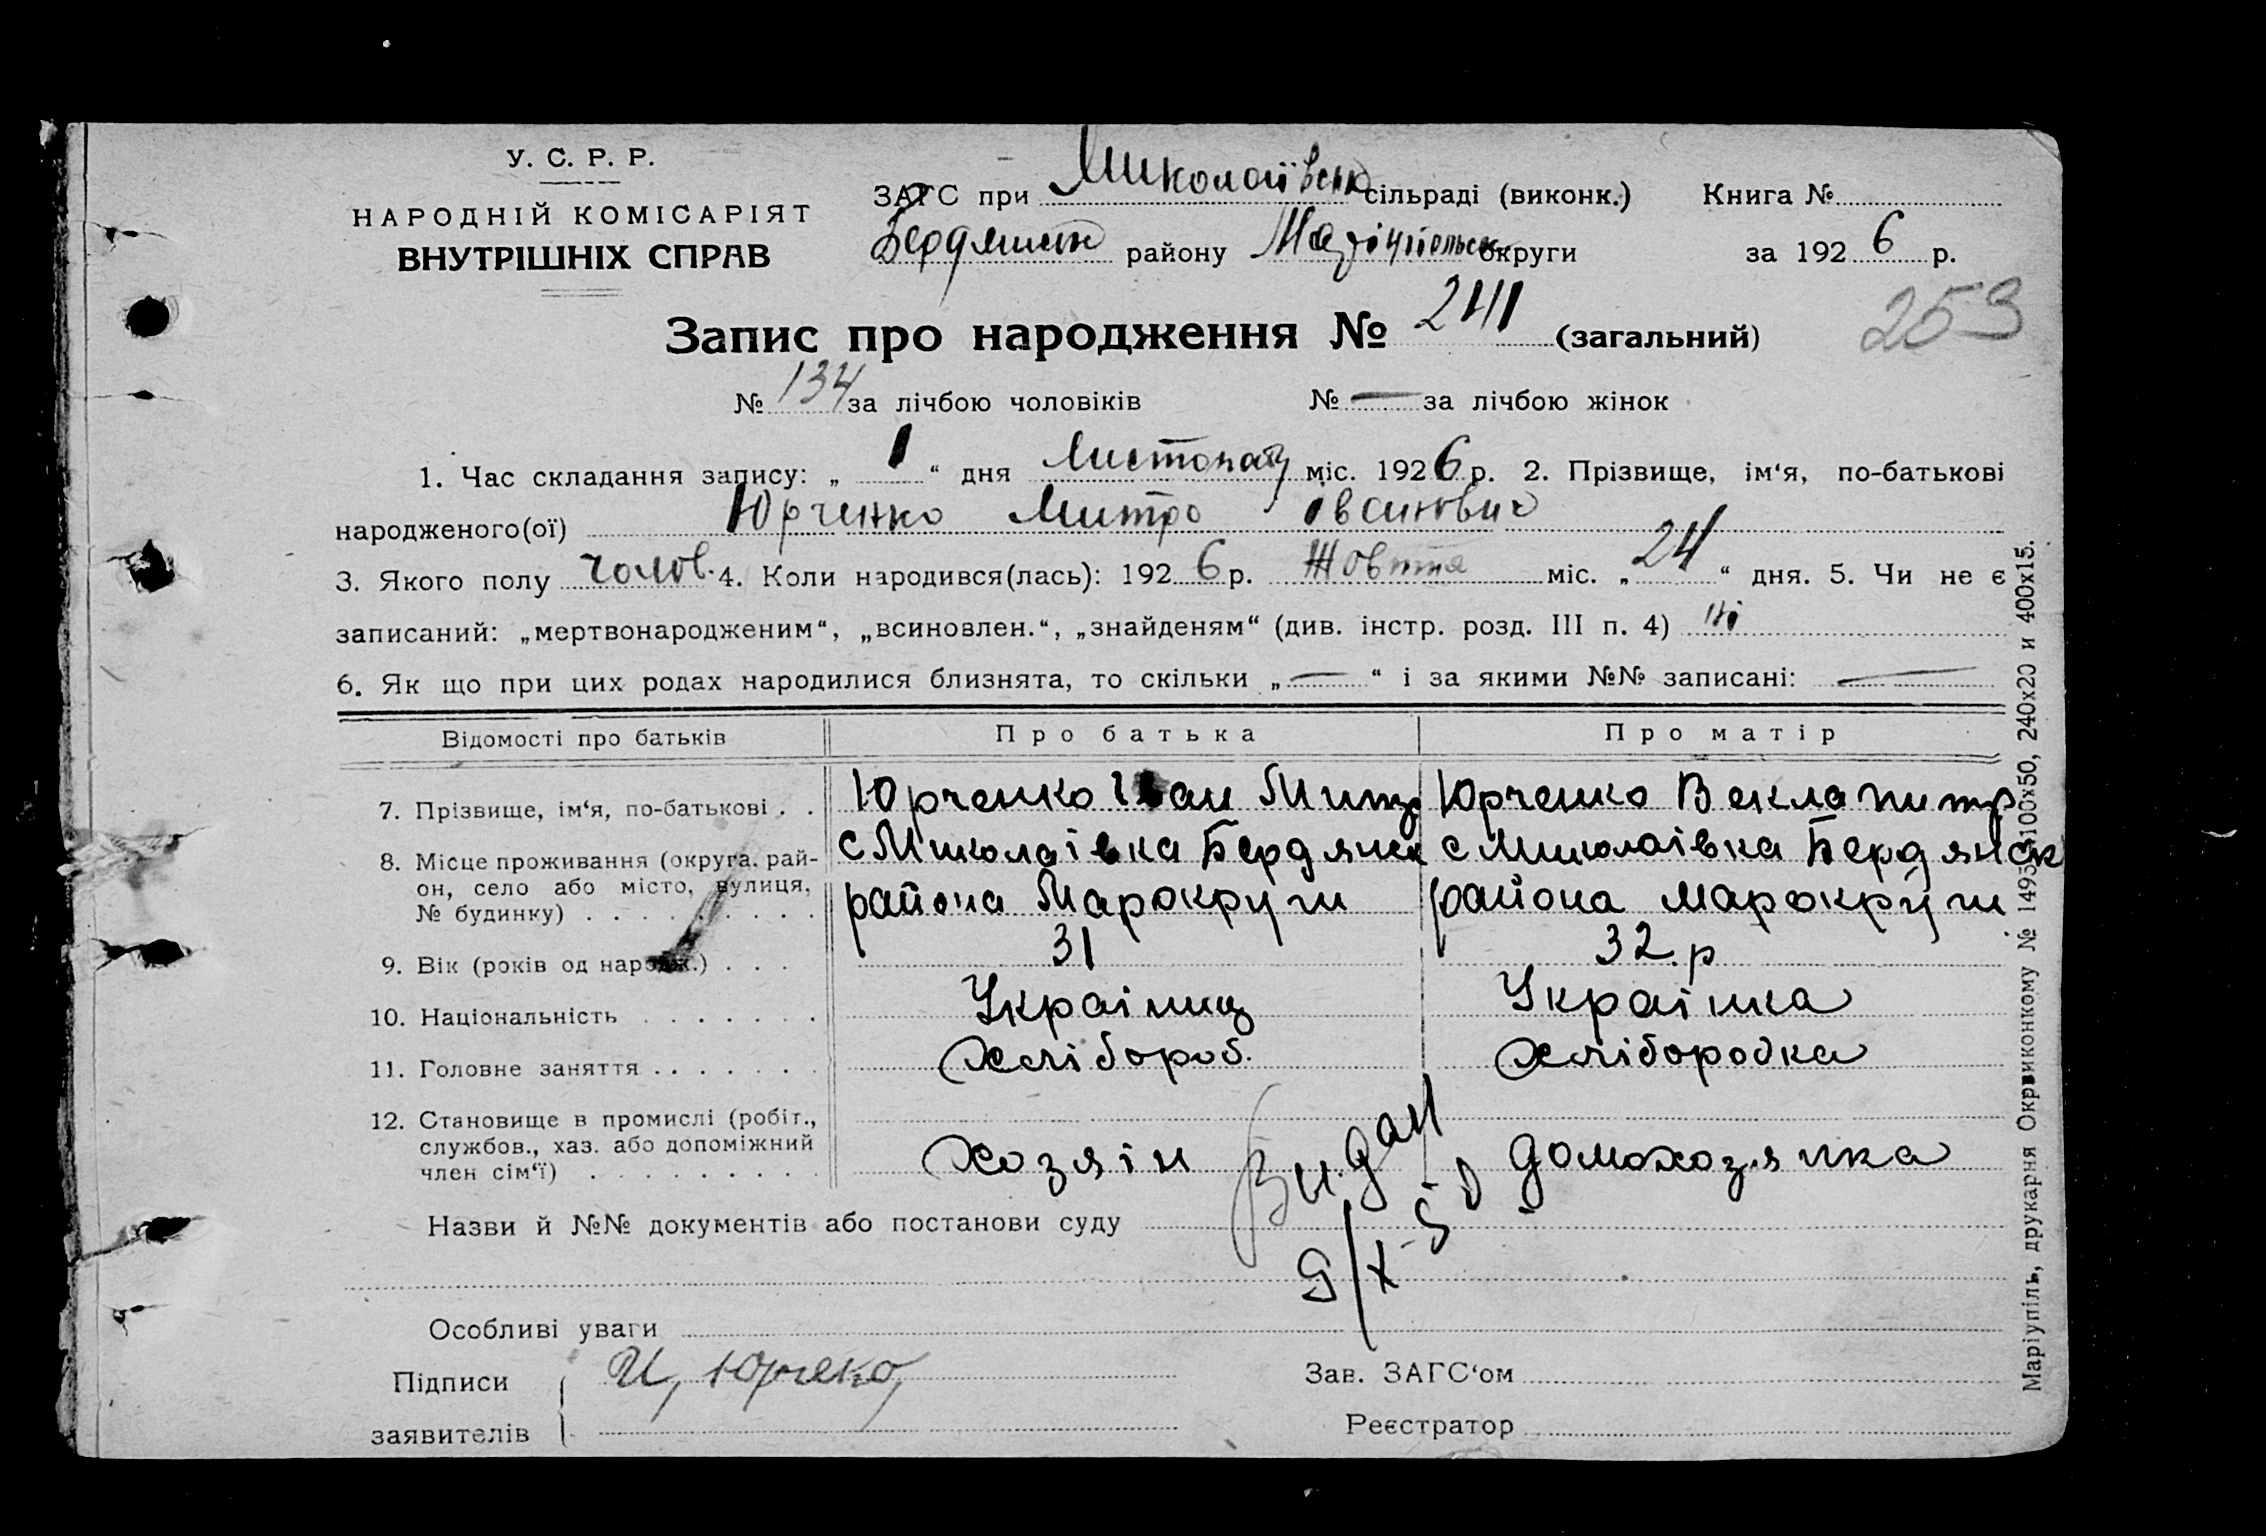 У. С. Р. Р.
НАРОДНІЙ КОМІСАРІЯТ
ВНУТРІШНІХ СПРАВ
ЗАГС при Миколаївськ сільраді (виконк.) Книга №
Бердянськ району Маріупольськ округи за 1926 р.
253
Запис про народження № 241 (загальний)
№ 134 за лічбою чоловіків № — за лічбою жінок
1. Час складання запису: „ 1 “ дня Листопад міс. 1926 р. 2. Прізвище, ім‘я, по-батькові
народженого(ої) Юрченко Митро Іванович
3. Якого полу чолов. 4. Коли народився(лась): 1926 р. Жовтня міс. „ 24 “ дня. 5. Чи не є
записаний: „мертвонародженим“, „всиновлен.“, „знайденям“ (див. інстр. розд. III п. 4) ні
6. Як що при цих родах народилися близнята, то скільки „ — “ і за якими №№ записані: —
Відомості про батьків Про батька Про матір
7. Прізвище, ім‘я, по-батькові . . Юрченко Іван Митр Юрченко Векла
8. Місце проживання (округа, рай- с Миколаівка Бердянськ с Миколаівка Бердянськ
он, село або місто, вулиця,
№ будинку) района Марокруги района Марокруги
9. Вік (років од народж.) . . . 31 32 р
10. Національність Украінец Украінка
11. Головне заняття Хлібороб. Хліборобка
12. Становище в промислі (робіт.,
службов., хаз. або допоміжний
член сім‘ї) Хозяін домохозяйка
Видан
9/X-50
Назви й №№ документів або постанови суду
Особливі уваги
Підписи И, Юрчеко Зав. ЗАГС‘ом
заявителів Реєстратор
Маріупіль, друкарня Окрвиконкому № 1495 3100х50, 240х20 и 400х15.